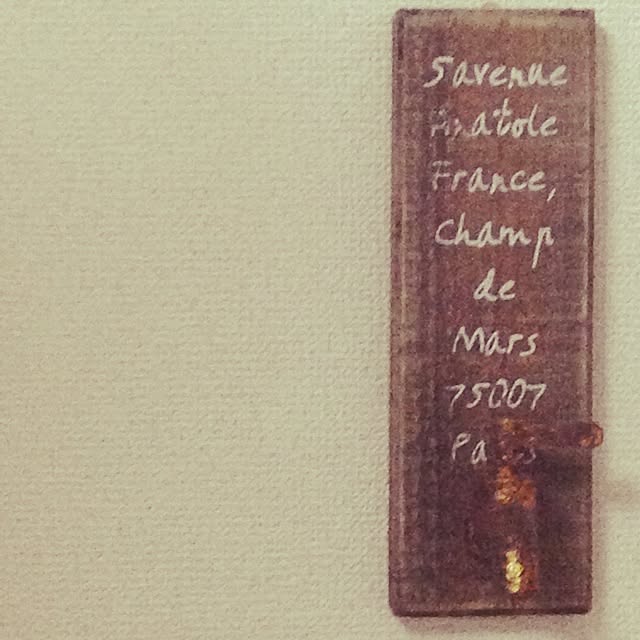 5 avenue
Anatole
France,
Champ
de
Mars
75007
Paris